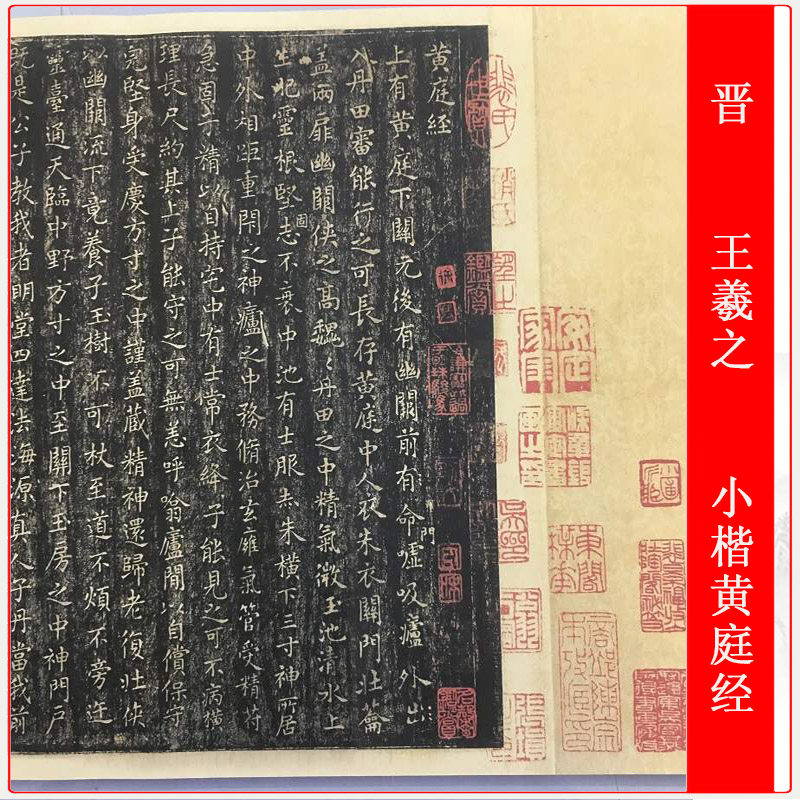 晋 王羲之 小楷黄庭经
黄庭經
上有黄庭下關元後有幽闕前有命門嘘吸廬外出
入丹田審能行之可長存黄庭中人衣朱衣關門壯籥
蓋兩扉幽闕俠之高巍〻丹田之中精氣微玉池清水上
生肥靈根堅固志不衰中池有士服赤朱橫下三寸神所居
中外相距重閇之神廬之中務脩治玄廱氣管受精符
急固子精以自持宅中有士常衣絳子能見之可不病橫
理長尺約其上子能守之可無恙呼噏廬間以自償保守
完堅身受慶方寸之中謹蓋藏精神還歸老復壯俠
以幽闕流下竟養子玉樹不可杖至道不煩不旁迕
靈臺通天臨中野方寸之中至關下玉房之中神門戶
既是公子教我者明堂四達法海源真人子丹當我前